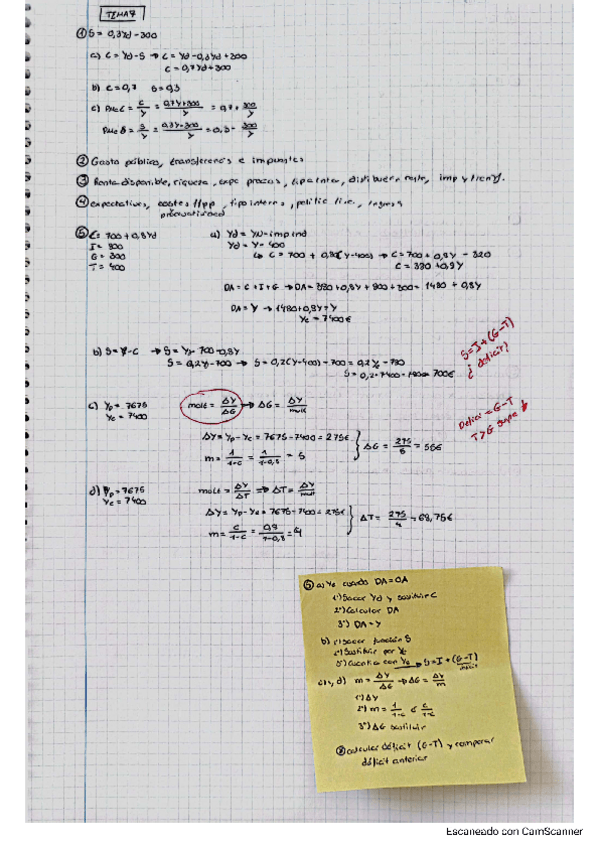 TEMA 7
① S = 0,3Yd - 300
a) C = Yd - S → C = Yd - 0,3Yd + 300
C = 0,7Yd + 300
b) c = 0,7 s = 0,3
c) PMeC = C/Y = 0,7Y+300/Y = 0,7 + 300/Y
PMeS = S/Y = 0,3Y-300/Y = 0,3 - 300/Y
② Gasto público, transferencias e impuestos
③ Renta disponible, riqueza, expe precios, tipo inter, distribuc renta, imp y transf.
④ expectativas, costes, tipo interes, politic
productividad
⑤ C = 700 + 0,8Yd
I = 800
G = 300
T = 400
a) Yd = Y - imp ind
Yd = Y - 400
↳ C = 700 + 0,8(Y-400) → C = 700 + 0,8Y - 320
C = 380 + 0,8Y
DA = C + I + G → DA = 380 + 0,8Y + 800 + 300 = 1480 + 0,8Y
DA = Y → 1480 + 0,8Y = Y
Ye = 7400€
b) S = Y - C → S = Y - 700 - 0,8Y
S = 0,2Y - 700 → S = 0,2(Y-400) - 700 = 0,2Y - 780
S = 0,2·7400 - 780 = 700€
S = I + (G-T)
¿déficit?
c) Yp = 7675
Ye = 7400
mult = ΔY/ΔG → ΔG = ΔY/mult
ΔY = Yp - Ye = 7675 - 7400 = 275€
m = 1/1-c = 1/1-0,8 = 5
ΔG = 275/5 = 55€
Déficit = G - T
T > G
d) Yp = 7675
Ye = 7400
mult = ΔY/ΔT → ΔT = ΔY/mult
ΔY = Yp - Ye = 7675 - 7400 = 275€
m = c/1-c = 0,8/1-0,8 = 4
ΔT = 275/4 = 68,75€
⑤ a) Ye cuando DA = OA
1º) Sacar Yd y sustituir C
2º) Calcular DA
3º) DA = Y
b) 1º) Sacar función S
2º) Sustituir por Ye
3º) Cuentas con Ye → S = I + (G-T)
déficit
c), d) m = ΔY/ΔG → ΔG = ΔY/m
1º) ΔY
2º) m = 1/1-c ó c/1-c
3º) ΔG sustituir
calcular déficit (G-T) y comparar
déficit anterior
Escaneado con CamScanner